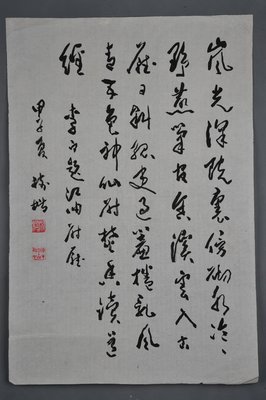 嵐光深院裏傍砌水泠〻
野燕巢官舍溪雲入古
廳日斜孤吏過簾捲亂峰
青五色神仙尉焚香讀道
經
李白題江油尉廳
甲子夏